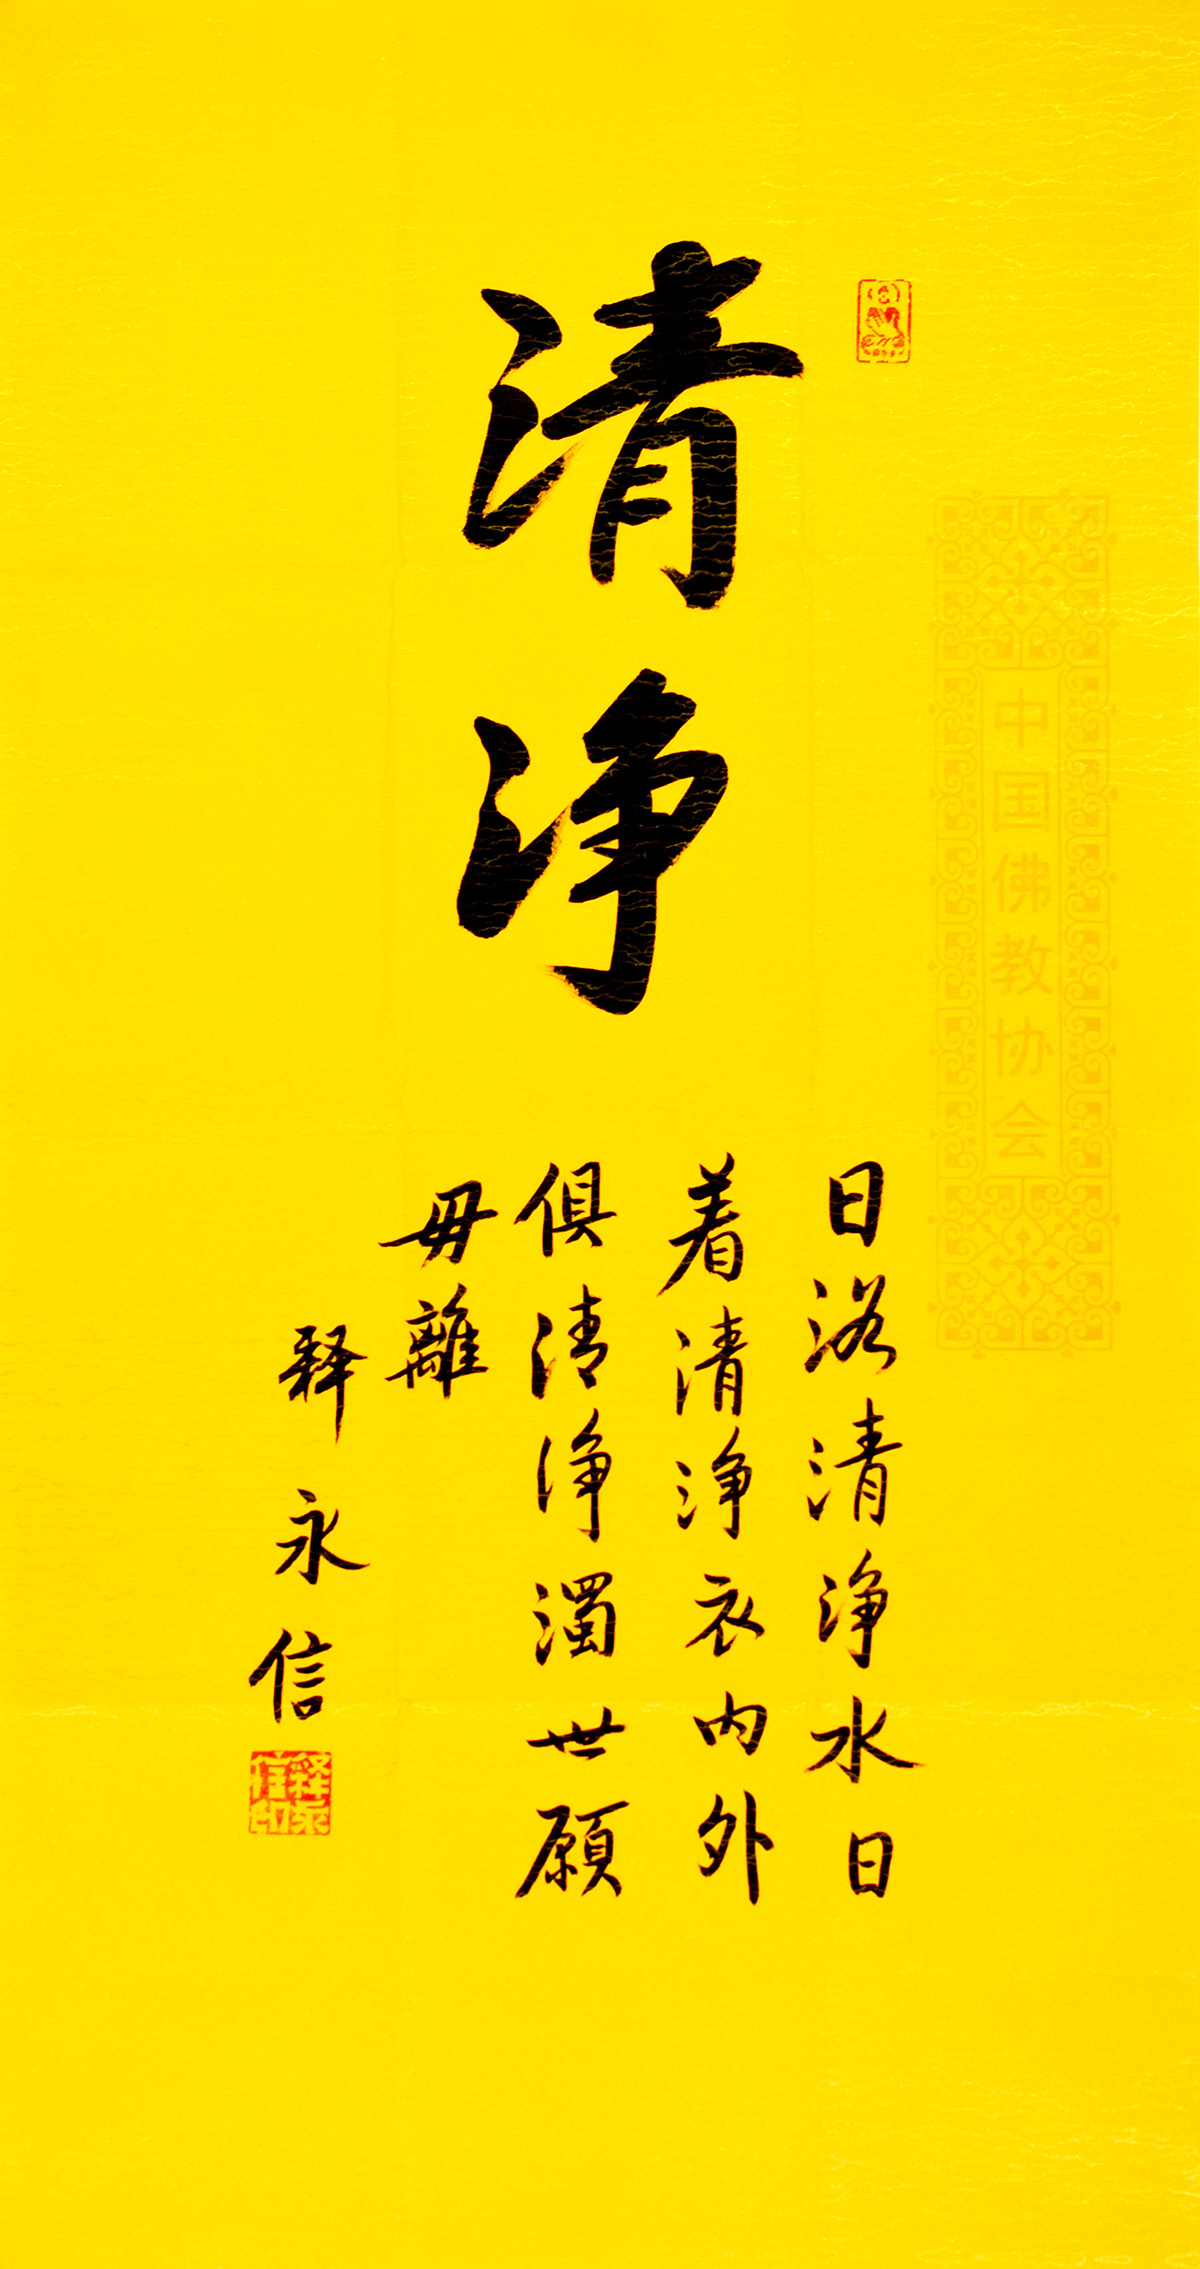 清净
中国佛教协会
日浴清净水日
着清净衣内外
俱清净濁世願
毋離
释永信
释永信印